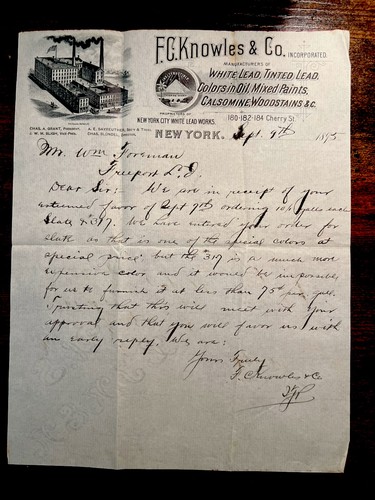 F.C. Knowles & Co. INCORPORATED.
MANUFACTURERS OF
WHITE LEAD, TINTED LEAD,
Colors in Oil, Mixed Paints,
CALSOMINE, WOODSTAINS &C.
PROPRIETORS OF
NEW YORK CITY WHITE LEAD WORKS.
180-182-184 Cherry St.
CHAS. A. GRANT, President.
J. W. M. Vice-Pres.
A. E. Secy & Treas.
CHAS.
NEW YORK. Sept. 9th 1895
Mr. Wm Foreman
Freeport L.I.
Dear Sir:- We are in receipt of your
esteemed favor of Sept 7th ordering 10 galls each
Slate & #317. We have entered your order for
slate as that is one of the special colors at
special price but the #317 is a much more
expensive color and it would be impossible
for us to furnish it at less than 75¢ per gall.
Trusting that this will meet with your
approval and that you will favor us with
an early reply. We are:
Yours Truly
F. C. Knowles & Co.